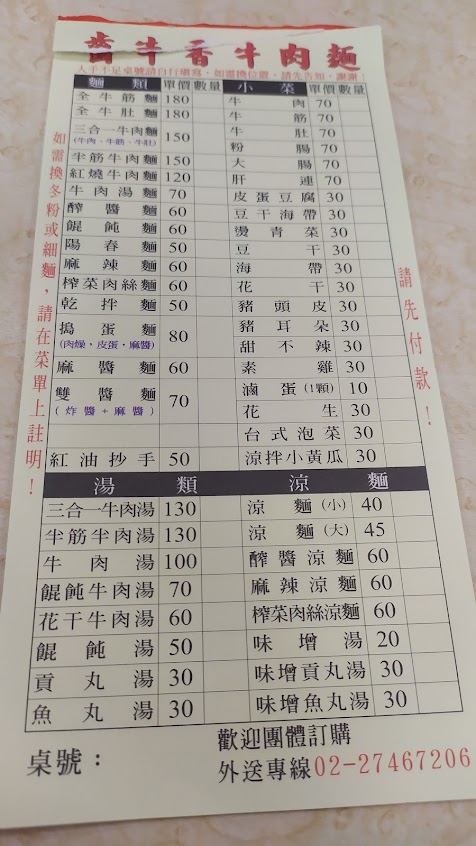 牛香牛肉麵
人手不足桌號請自行填寫，如需換位置，請先告知，謝謝！
麵類 單價 數量
全牛筋麵 180
全牛肚麵 180
三合一牛肉麵 150
(牛肉、牛筋、牛肚)
半筋牛肉麵 150
紅燒牛肉麵 120
牛肉湯麵 70
酢醬麵 60
餛飩麵 60
陽春麵 50
麻辣麵 60
榨菜肉絲麵 60
乾拌麵 50
搗蛋麵 80
(肉燥、皮蛋、麻醬)
麻醬麵 60
雙醬麵 70
(炸醬+麻醬)
紅油抄手 50
小菜 單價 數量
牛肉 70
牛筋 70
牛肚 70
粉腸 70
大腸 70
肝連 70
皮蛋豆腐 30
豆干海帶 30
燙青菜 30
豆干 30
海帶 30
花干 30
豬頭皮 30
豬耳朵 30
甜不辣 30
素雞 30
滷蛋(1顆) 10
花生 30
台式泡菜 30
涼拌小黃瓜 30
湯類
三合一牛肉湯 130
半筋半肉湯 130
牛肉湯 100
餛飩牛肉湯 70
花干牛肉湯 60
餛飩湯 50
貢丸湯 30
魚丸湯 30
涼麵
涼麵(小) 40
涼麵(大) 45
醡醬涼麵 60
麻辣涼麵 60
榨菜肉絲涼麵 60
味增湯 20
味增貢丸湯 30
味增魚丸湯 30
如需換冬粉或細麵，請在菜單上註明！
請先付款！
桌號：
歡迎團體訂購
外送專線02-27467206